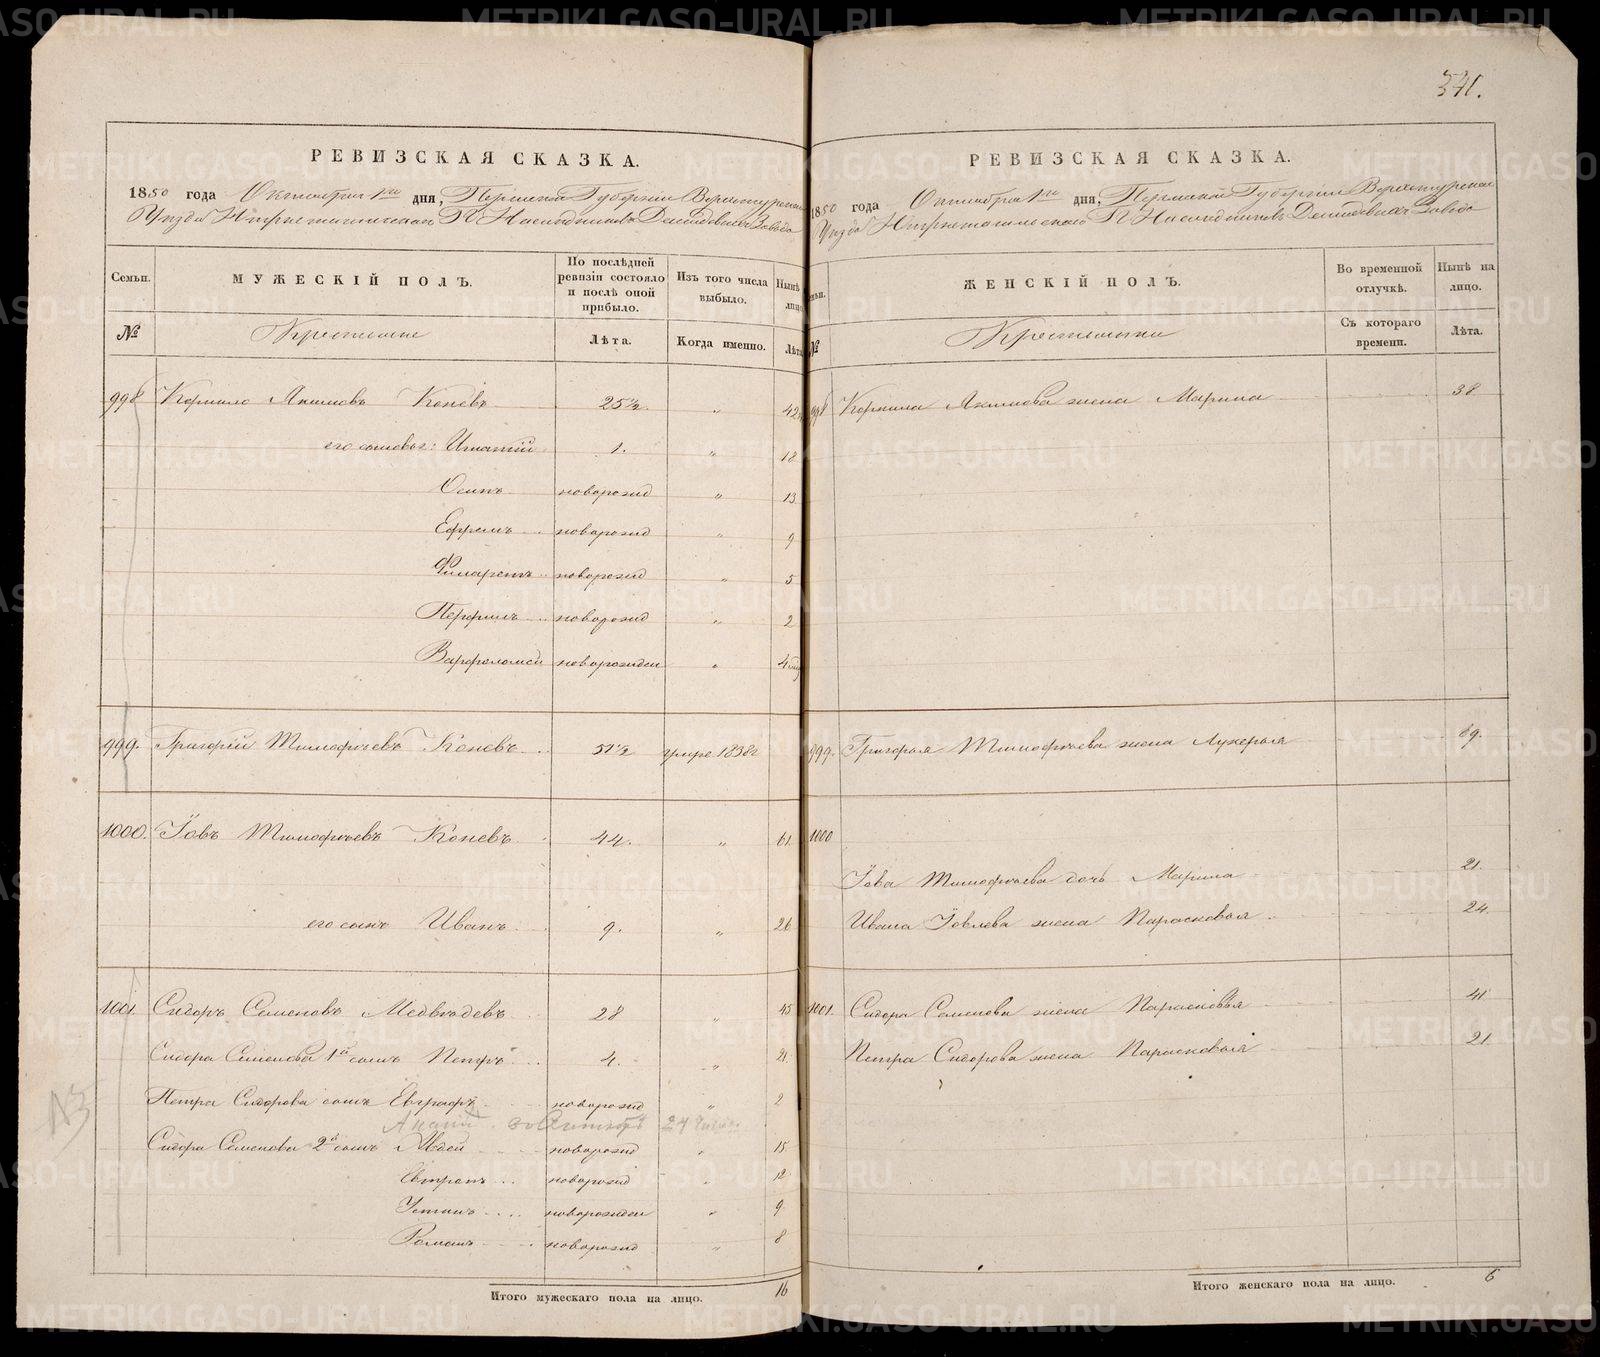 341.
РЕВИЗСКАЯ СКАЗКА.
1850 года Октября 1го дня, Пермской Губернии Верхотурскаго
Уезда Нижнетагильскаго Г. Наследниковъ Демидовыхъ Завода
Семьи. МУЖЕСКІЙ ПОЛЪ. По послѣдней ревизіи состояло и послѣ оной прибыло. Изъ того числа выбыло. Нынѣ на лицо.
№ Крестьяне Лѣта. Когда именно. Лѣта.
998 Корнило Якимовъ Коневъ 25½ „ 42½
его сыновья: Игнатій 1. „ 18
Осипъ новорожд „ 13
Ефремъ новорожд „ 9
Филаретъ новорожд „ 5
Перфилъ новорожд „ 2
Варфоломей новорожден „ 4
999. Григорій Тимофѣевъ Коневъ 51½ умре 1838г
1000. Іовъ Тимофѣевъ Коневъ 44. „ 61
его сынъ Иванъ 9. „ 26
1001. Сидоръ Семеновъ Медвѣдевъ 28 „ 45
Сидора Семенова 1й сынъ Петръ 4. „ 21
Петра Сидорова сынъ Евграфъ новорожд „ 2
Сидора Семенова 2й сынъ Авдей новорожд „ 15
Евтропъ новорожд „ 12
Устинъ новорожден „ 9
Романъ новорожд „ 8
Итого мужескаго пола на лицо. 16
РЕВИЗСКАЯ СКАЗКА.
1850 года Октября 1го дня, Пермской Губернии Верхотурскаго
Уезда Нижнетагильскаго Г. Наследниковъ Демидовыхъ Завода
ЖЕНСКІЙ ПОЛЪ. Во временной отлучкѣ. Нынѣ на лицо.
№ Крестьянки Съ котораго времени. Лѣта.
998 Корнила Якимова жена Марина 38
999. Григорья Тимофѣева жена Лукерья 69.
1000
Іова Тимофѣева дочь Марина 21.
Ивана Іовлева жена Парасковья 24.
1001. Сидора Семенова жена Парасковья 41
Петра Сидорова жена Парасковья 21
Итого женскаго пола на лицо. 6
METRIKI.GASO-URAL.RU